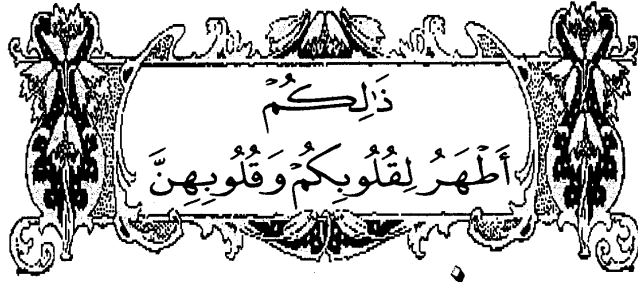 ذَٰلِكُمْ
أَطْهَرُ لِقُلُوبِكُمْ وَقُلُوبِهِنَّ